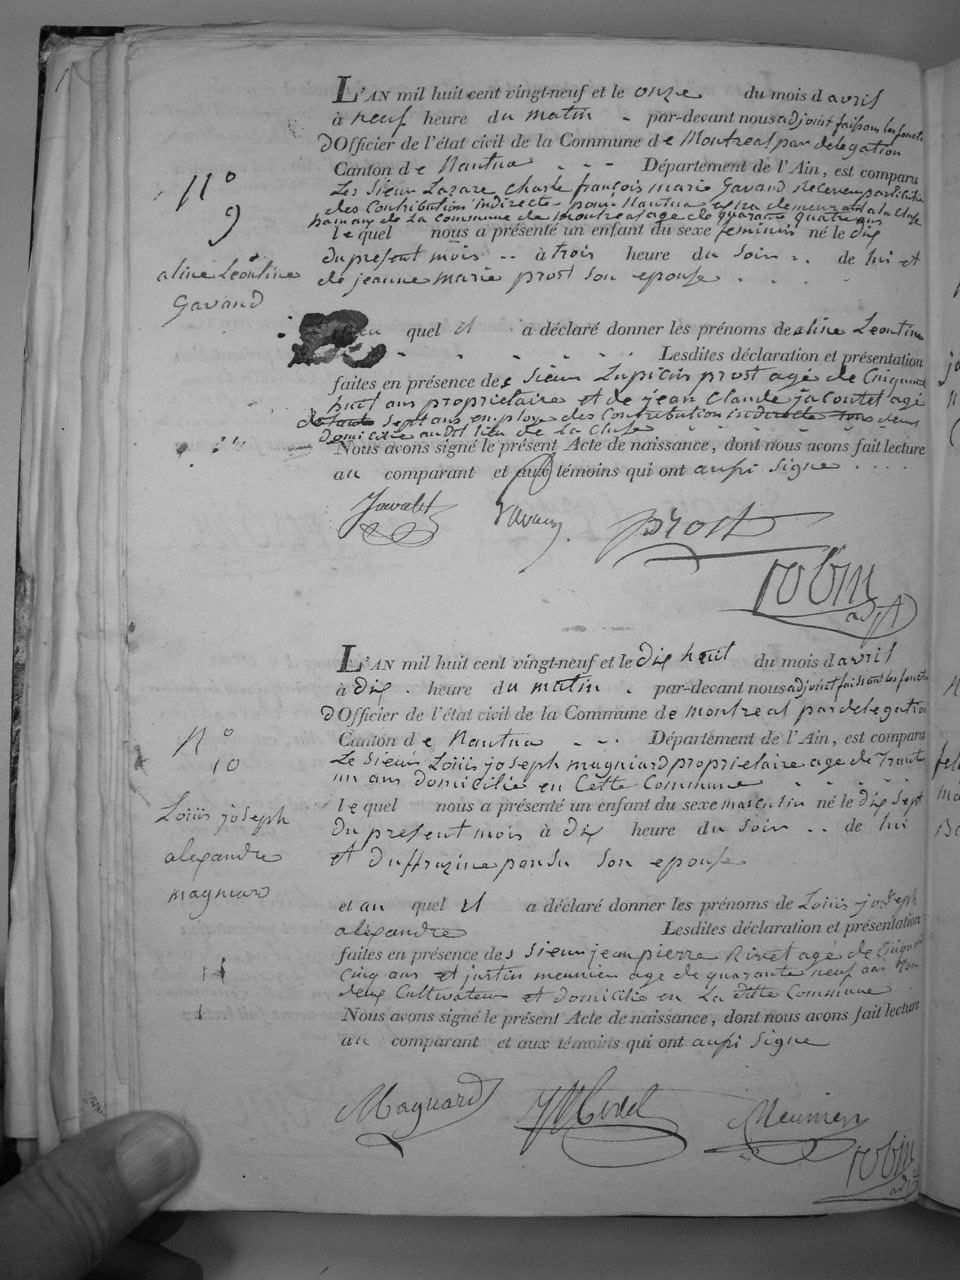 L'AN mil huit cent vingt-neuf et le onze du mois d avril
à neuf heure du matin par-devant nous adjoint faisant les fonctᵉ
D'Officier de l'état civil de la Commune de Montreal par delegation
N° 9
Canton de Nantua Département de l'Ain, est comparu
Les Sieur Lazare Charle françois marie Gavand receveur
des Contribution indirecte pour Nantua demeurant a la Cluse
hameau de La Commune de montreal age de quarante quatre ans
lequel nous a présenté un enfant du sexe feminin né le dix
aline Leontine
Gavand
du present mois à trois heure du Soir de lui et
de jeanne marie prost son epouse
quel il a déclaré donner les prénoms de aline Leontine
Lesdites déclaration et présentation
faites en présence des Sieur Lupicin prost agé de Cinquante
huit ans propriétaire et de jean Claude jacoutet agé
sept ans employe des Contribution indirecte tous deux
domicilie audit lieu de La Cluse
Nous avons signé le présent Acte de naissance, dont nous avons fait lecture
au comparant et aux témoins qui ont aussi Signe
Gavand
prost
robin
adjt
L'AN mil huit cent vingt-neuf et le dix huit du mois d avril
à dix heure du matin par-devant nous adjoint faisant les fonctᵉ
D'Officier de l'état civil de la Commune de montreal par delegation
N° 10
Canton de Nantua Département de l'Ain, est comparu
Le Sieur Loüis joseph magniard proprietaire age de Trante
un ans domicilié en Cette Commune
lequel nous a présenté un enfant du sexe masculin né le dix Sept
Loüis joseph
alexandre
magniard
du present mois à dix heure du Soir de lui
et Son epouse
et au quel il a déclaré donner les prénoms de Loüis joseph
alexandre Lesdites déclaration et présentation
faites en présence des Sieur jean pierre age de Cinquante
Cinq ans et justin meunier age de quarante neuf ans tous
deux Cultivateur et domicilié en La ditte Commune
Nous avons signé le présent Acte de naissance, dont nous avons fait lecture
au comparant et aux témoins qui ont aussi Signe
Magnard
Meunier
robin
adjt